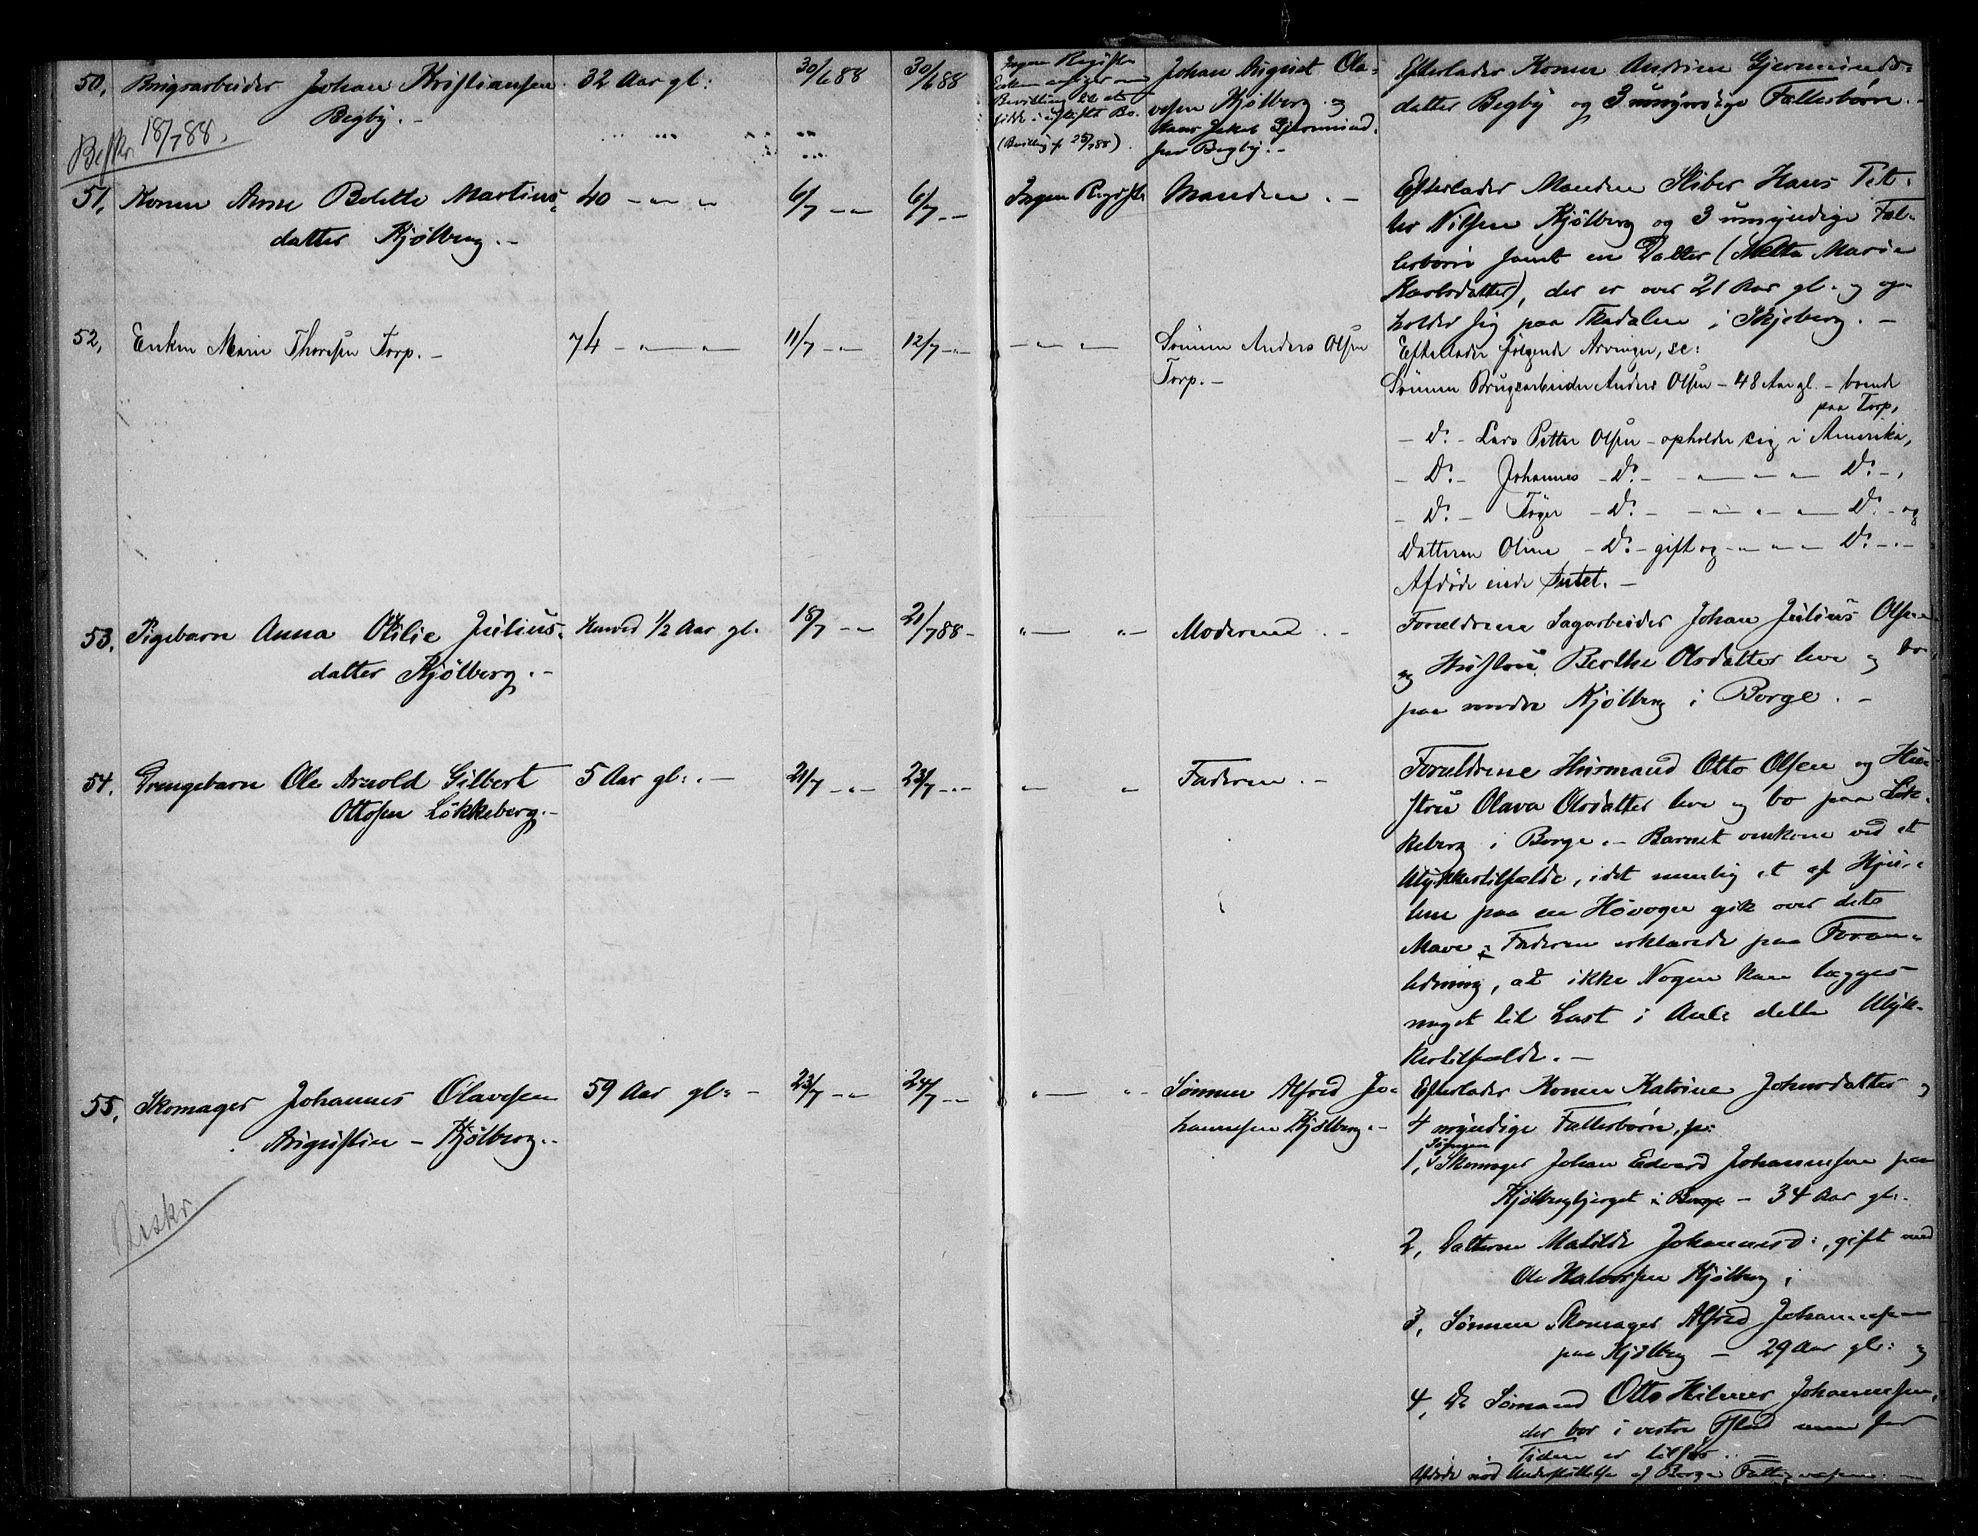 50, Brugsarbeider Johan Kristiansen 32 Aar gl: 30/6 88 30/6 88
Begby. -
Beskr. 18/7 88.
Ingen Registr.
Enken
Bevilling til at
sidde i uskiftet Bo.
(Bevilling af 25/7 88).
Johan August Ola-
vesen Kjølberg og
Hans Jakob Gjermund-
sen Begby. -
Efterlader Konen Andrine Gjermunds-
datter Begby og 3 umyndige Fællesbørn. -
51, Konen Anne Bolette Martins- 40 - " - " 6/7 - " - 6/7 - " - Ingen Registr. Manden. -
datter Kjølberg. -
Efterlader Manden Stiber Hans Pet-
ter Nilsen Kjølberg og 3 umyndige Fæl-
lesbørn samt en Datter (Mette Marie
Karlsdatter), der er over 21 Aar gl. og op-
holder sig paa Skadalen i Skjeberg. -
52, Enken Marie Thoresen Torp. - 74 - " - " - 11/7 - " - 12/7 - " - - " - " - Sønnen Anders Olsen
Torp. -
Efterlader følgende Arvinger, sc:
Sønnen Brugsarbeider Anders Olsen - 48 Aar gl. - boende
paa Torp,
- Do. - Lars Petter Olsen - opholder sig i Amerika,
- Do. - Johannes - Do. - - " - " - " Do. -,
- Do. - Tøger - Do. - - " - " - " Do. - og
Datteren Oline - Do. - gift og - " - " - " Do. - . -
Afdøde eiede Intet. -
53, Pigebarn Anna Otilie Julius- Henved 1/2 Aar gl. 18/7 - " - 21/7 88 - " - " - Moderen. -
datter Kjølberg. -
Forældrene Sagarbeider Johan Julius Olsen
og Hustru Berthe Olsdatter leve og bo
paa søndre Kjølberg i Borge. -
54, Drengebarn Ole Arnold Gilbert 5 Aar gl:. - 21/7 - " - 23/7 - " - " " Faderen. -
Ottosen Løkkeberg. -
Forældrene Husmand Otto Olsen og Hu-
stru Olava Olsdatter leve og bo paa Løk-
keberg i Borge. - Barnet omkom ved et
Ulykkestilfælde, idet nemlig et af Hju-
lene paa en Høvogn gik over dets
Mave. Faderen erklærede paa Foran-
ledning, at ikke Nogen kan lægges
noget til Last i Anl: dette Ulyk-
kestilfælde. -
55, Skomager Johannes Olavesen 59 Aar gl: - 23/7 - " - 24/7 - " - " - " - Sønnen Alfred Jo-
Augustin - Kjølberg. -
hannesen Kjølberg. -
Efterlader Konen Katrine Johnsdatter og
4 myndige Fællesbørn, sc:
1, Sønnen Skomager Johan Edvard Johannesen paa
Kjølbergbjerget i Borge - 34 Aar gl:.
2, Datteren Matilde Johannesd:, gift med
Ole Halvorsen Kjølberg,
3, Sønnen Skomager Alfred Johannesen
paa Kjølberg - 29 Aar gl: og
4, Do Sømand Otto Hilmer Johannesen,
der bor i vestre Fredrikstad men for
Tiden er tilsøs.
Afdøde nød Understøttelse af Borge Fattigvæsen. -
Beskr.